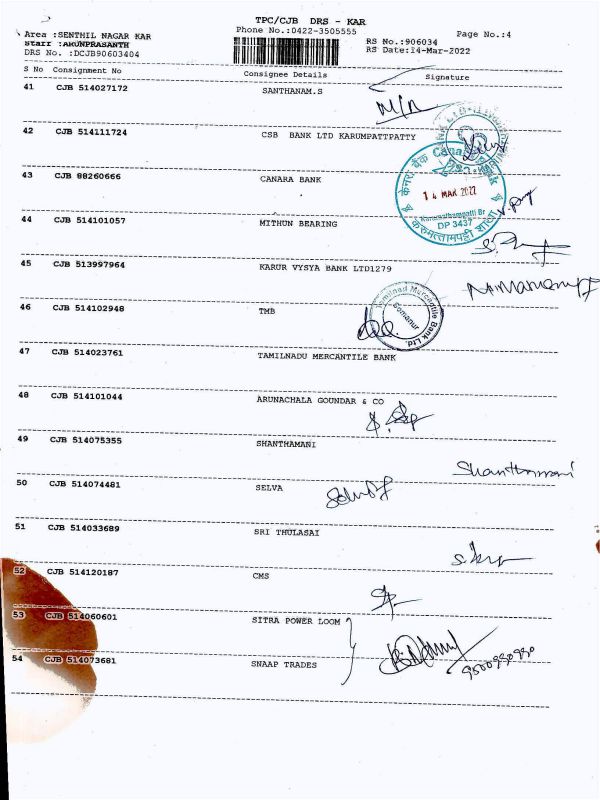 TPC/CJB DRS - KAR
Area :SENTHIL NAGAR KAR
Phone No.:0422-3505555
Page No.:4
Staff :ARUNPRASANTH
RS No.:906034
DRS No. :DCJB90603404
RS Date:14-Mar-2022
S No Consignment No Consignee Details Signature
41 CJB 514027172 SANTHANAM.S
42 CJB 514111724 CSB BANK LTD KARUMPATTPATTY
43 CJB 88260666 CANARA BANK
केनरा बैंक Canara Bank
14 MAR 2022
Karumathampatti Br
DP 3437
44 CJB 514101057 MITHUN BEARING
45 CJB 513997964 KARUR VYSYA BANK LTD1279
46 CJB 514102948 TMB
Tamilnad Mercantile Bank Ltd.
Somanur
47 CJB 514023761 TAMILNADU MERCANTILE BANK
48 CJB 514101044 ARUNACHALA GOUNDAR & CO
49 CJB 514075355 SHANTHAMANI
Shanthamani
50 CJB 514074481 SELVA
51 CJB 514033689 SRI THULASAI
52 CJB 514120187 CMS
53 CJB 514060601 SITRA POWER LOOM
54 CJB 514073681 SNAAP TRADES